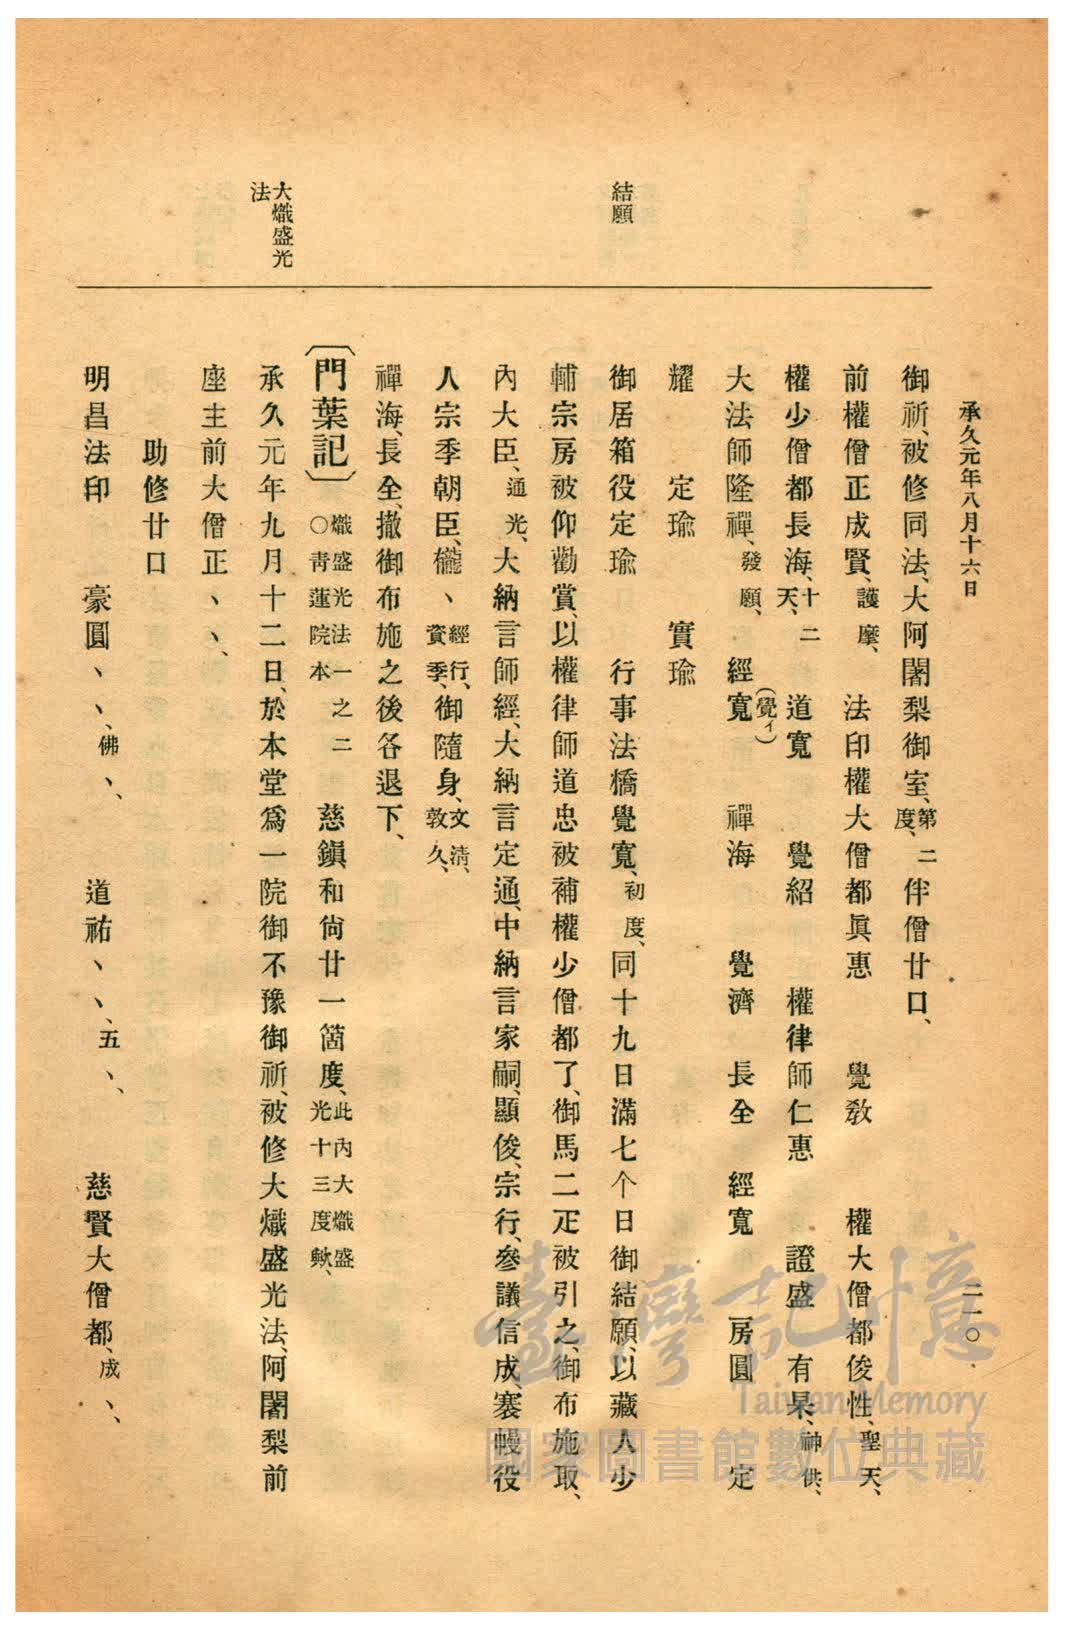 承久元年八月十六日
二一〇
結願
大熾盛光
法
御祈、被修同法、大阿闍梨御室、第二度、伴僧廿口、
前權僧正成賢、護摩、法印權大僧都眞惠 覺敎 權大僧都俊性、聖天、
權少僧都長海、十二天、道寬 覺紹 權律師仁惠 證盛 有杲、神供、
大法師隆禪、發願、經寬(覺イ) 禪海 覺濟 長全 經寬 房圓 定
耀 定瑜 實瑜
御居箱役定瑜 行事法橋覺寬、初度、同十九日滿七个日御結願、以藏人少
輔宗房被仰勸賞、以權律師道忠被補權少僧都了、御馬二疋被引之、御布施取、
內大臣、通光、大納言師經、大納言定通、中納言家嗣、顯俊、宗行、參議信成、褰幔役
人宗季朝臣、權、、經行、資季、御隨身、文淸、敦久、
禪海、長全、撤御布施之後各退下、
〔門葉記〕熾盛光法一之二 〇靑蓮院本 慈鎭和尙廿一箇度、此內大熾盛光十三度歟、
承久元年九月十二日、於本堂爲一院御不豫御祈、被修大熾盛光法、阿闍梨前
座主前大僧正、、、
助修廿口
明昌法印 豪圓、、、佛、、 道祐、、、五、、 慈賢大僧都、成、、
臺灣記憶
Taiwan Memory
國家圖書館數位典藏